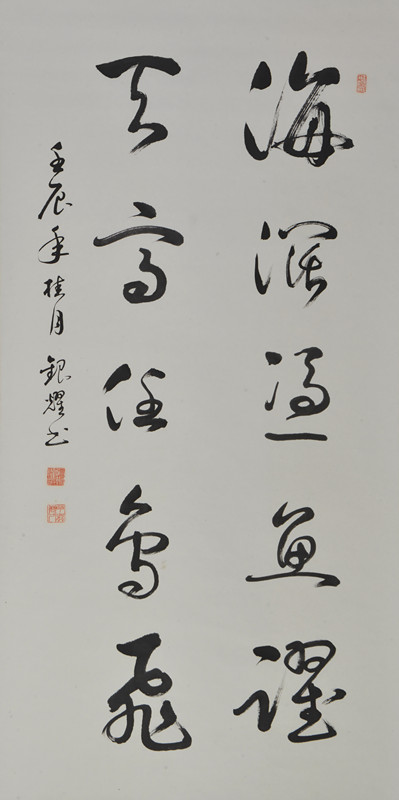 海濶憑魚躍
天高任鳥飛
壬辰年桂月 銀耀書